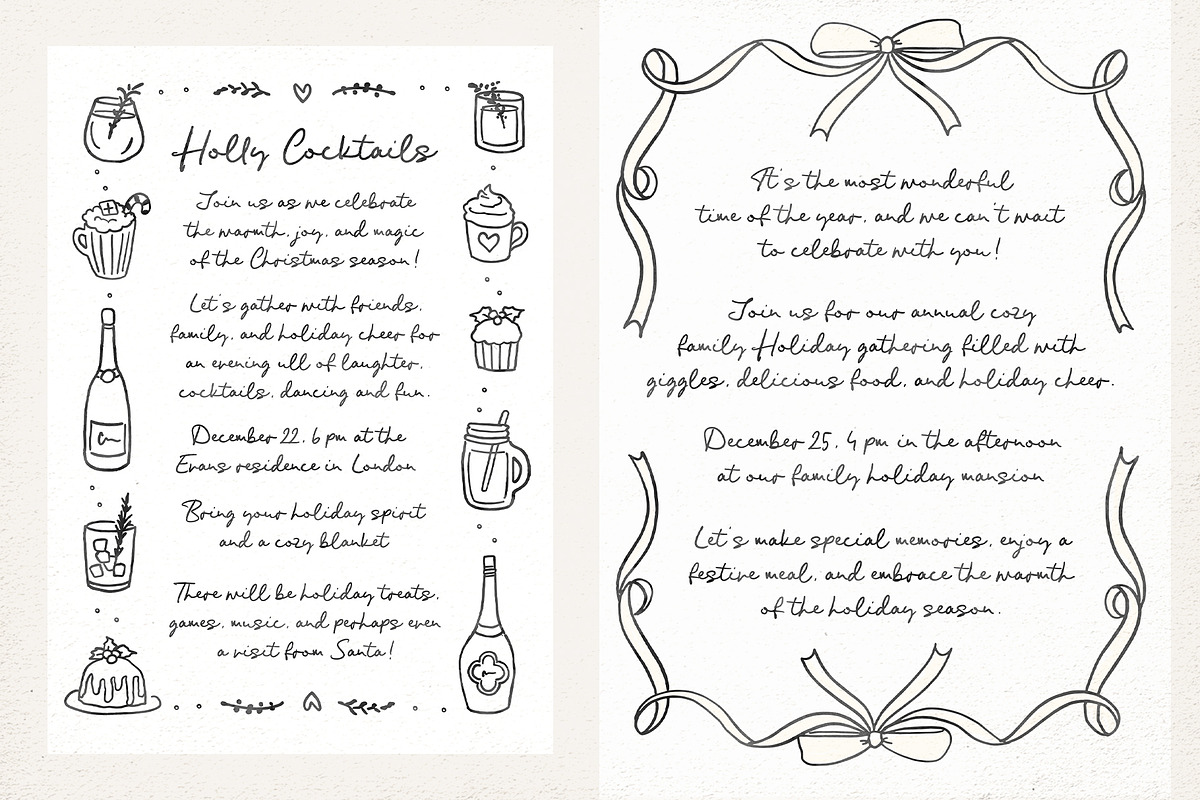 Holly Cocktails
Join us as we celebrate
the warmth, joy, and magic
of the Christmas season!
Let's gather with friends,
family, and holiday cheer for
an evening ull of laughter,
cocktails, dancing and fun.
December 22, 6 pm at the
Evans residence in London
Bring your holiday spirit
and a cozy blanket
There will be holiday treats,
games, music, and perhaps even
a visit from Santa!
It's the most wonderful
time of the year, and we can't wait
to celebrate with you!
Join us for our annual cozy
family Holiday gathering filled with
giggles, delicious food, and holiday cheer.
December 25, 4 pm in the afternoon
at our family holiday mansion
Let's make special memories, enjoy a
festive meal, and embrace the warmth
of the holiday season.